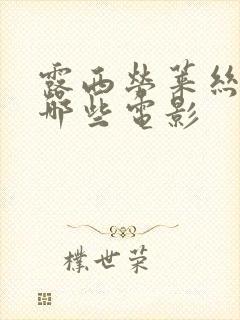 露西勞萊絲
那些電影
樸世荣